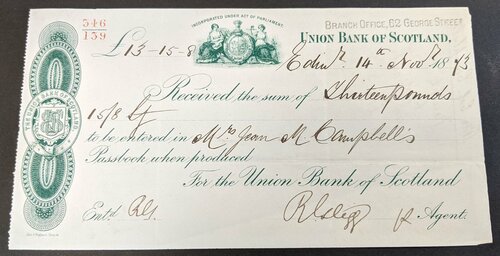 346
139
INCORPORATED UNDER ACT OF PARLIAMENT.
BRANCH OFFICE, 62 GEORGE STREET
UNION BANK OF SCOTLAND,
£13-15-8
Edinr. 14th Novr. 1873
Received the sum of Thirteen pounds
15/8 Stg
to be entered in Mrs Jean M Campbell's
Passbook when produced
For the Union Bank of Scotland
Entd.
Agent.
THE UNION BANK OF SCOTLAND